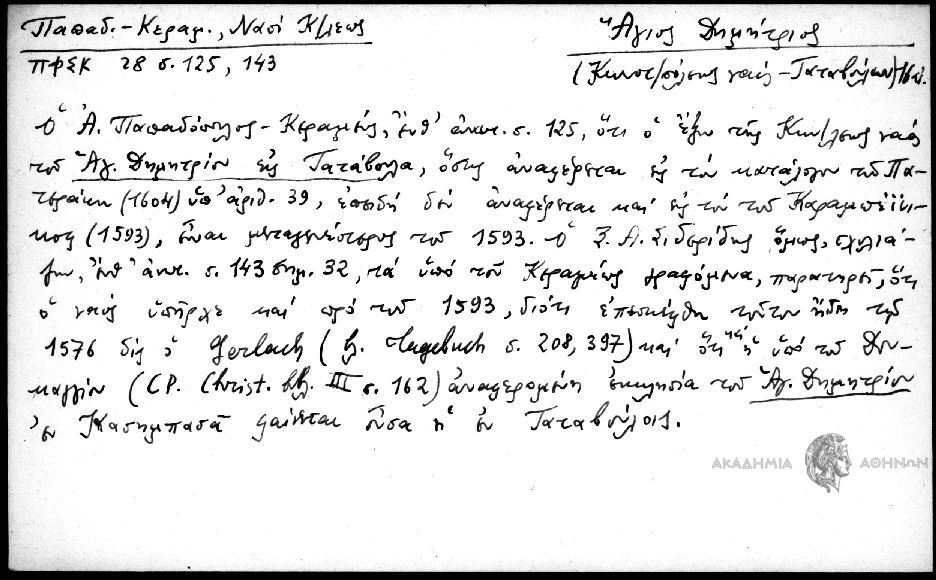 Παπαδ.-Κεραμ., Ναοί Κ/λεως
Ἅγιος Δημήτριος
ΠΦΣΚ 28 σ. 125, 143
(Κωνστ/πόλεως ναός - Ταταβούλων) 16 αἰ.
Ὁ Ἀ. Παπαδόπουλος-Κεραμεύς, ἔνθ' ἀνωτ. σ. 125, ὅτι ὁ ἔξω τῆς Κων/λεως ναός
τοῦ Ἁγ. Δημητρίου εἰς Ταταβούλα, ὅστις ἀναφέρεται εἰς τόν κατάλογον τοῦ Πα-
τεράκη (1604) ὑπ' ἀριθ. 39, ἐπειδή δέν ἀναφέρεται καί εἰς τόν τοῦ Καραμπεϊνί-
κος (1593), εἶναι μεταγενέστερος τοῦ 1593. Ὁ Ξ. Α. Σιδερίδης ὅμως, σχολιά-
ζων, ἔνθ' ἀνωτ. σ. 143 σημ. 32, τά ὑπό τοῦ Κεραμέως γραφόμενα, παρατηρεῖ, ὅτι
ὁ ναός ὑπῆρχε καί πρό τοῦ 1593, διότι ἐπεσκέφθη τοῦτον ἤδη τῷ
1576 δίς ὁ Gerlach (Tagebuch σ. 208, 397) καί ὅτι καί ἡ ὑπό τοῦ Δου-
καγγίου (CP. Christ. bk. III σ. 162) ἀναφερομένη ἐκκλησία τοῦ Ἁγ. Δημητρίου
ἐν Κασημπασᾶ φαίνεται οὖσα ἡ ἐν Ταταβούλοις.
ΑΚΑΔΗΜΙΑ ΑΘΗΝΩΝ